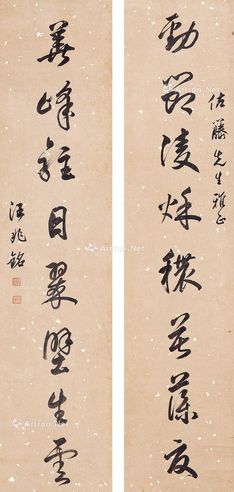 佐藤先生雅正
勁節凌秋穠藻夏
峰駐日翠壁生雲
汪兆銘
Artron.Net
Artron.Net